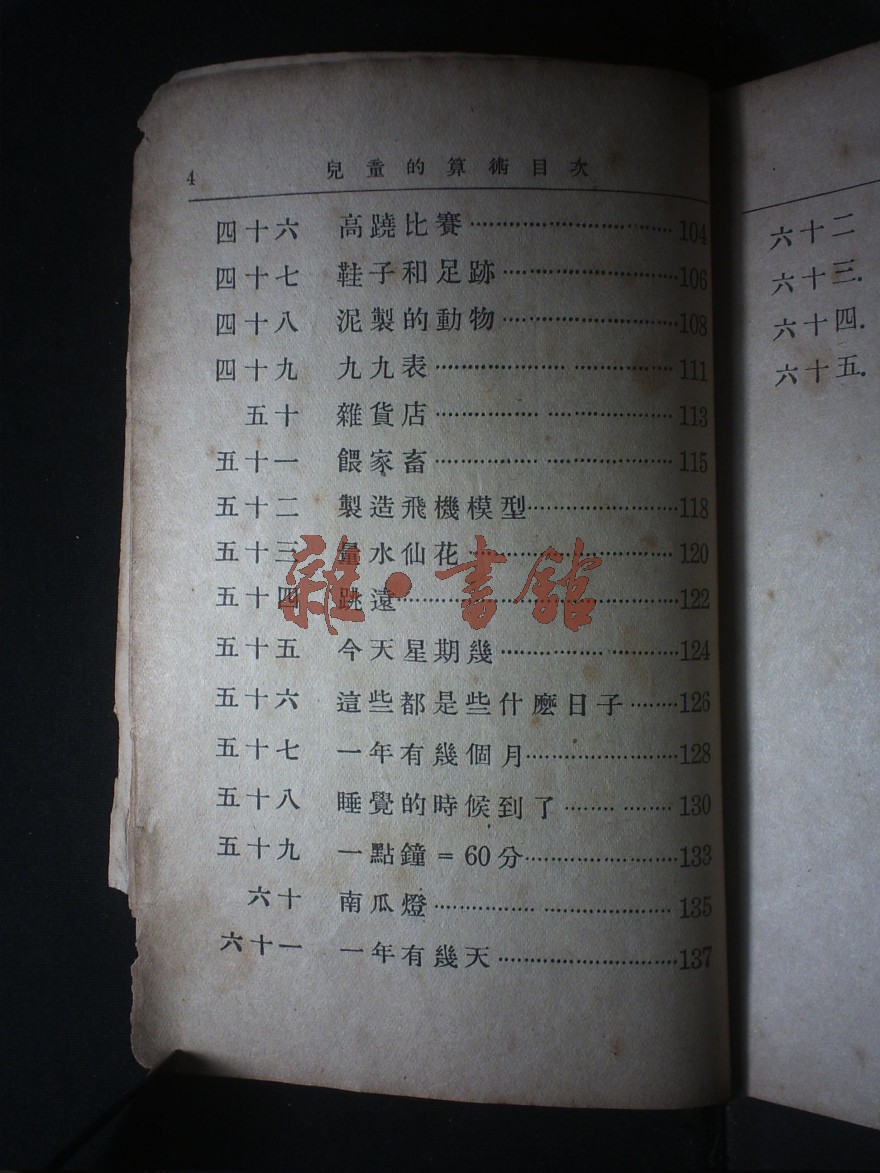 4 兒童的算術目次
四十六 高蹺比賽……………………104
四十七 鞋子和足跡…………………106
四十八 泥製的動物…………………108
四十九 九九表………………………111
五十 雜貨店………………………113
五十一 餵家畜………………………115
五十二 製造飛機模型………………118
五十三 量水仙花……………………120
五十四 跳遠…………………………122
五十五 今天星期幾…………………124
五十六 這些都是些什麼日子………126
五十七 一年有幾個月………………128
五十八 睡覺的時候到了……………130
五十九 一點鐘=60分………………133
六十 南瓜燈………………………135
六十一 一年有幾天…………………137
六十二
六十三.
六十四.
六十五.
雜·書館